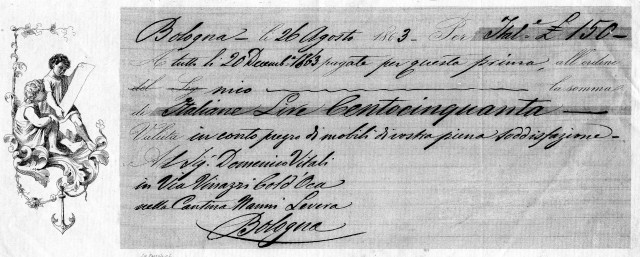 Bologna li 26 Agosto 1863 Per Ital.e £ 150
A tutto li 20 Decemb.e 1863 pagate per questa prima, all'ordine
del Sig. mio la somma
di Italiane Lire Centocinquanta
Valuta in conto pegno di mobili di vostra piena soddisfazione
Al Sig. Domenico Vitali
in Via Vinazzi Col d'Oca
nella Cantina Nanni Levera
Bologna